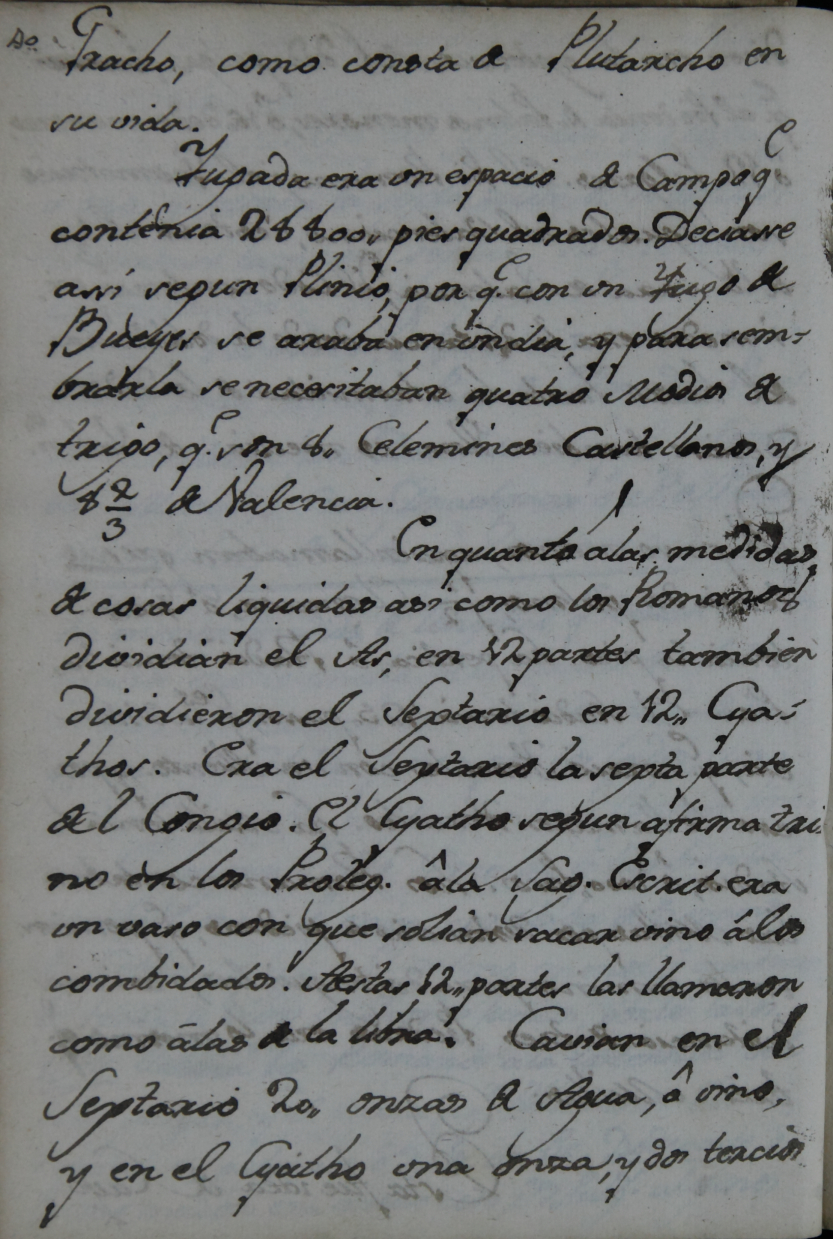 Do Gracho, como consta de Plutarcho en
su vida.
Yugada era un espacio de Campo qe
contenia 28800,, pies quadrados. Deciasse
assi segun Plinio, por qe. con un Yugo de
Bueyes se araba en un dia, y para sem-
brarla se necesitaban quatro Modios de
trigo, qe. son 8,, Celemines Castellanos, y
8 2/3 de Valencia.
En quanto á las medidas
de cosas liquidas asi como los Romanos
dividian el As, en 12 partes tambien
dividieron el Septario en 12,, Cya-
thos. Era el Septario la septa parte
del Congio. El Cyatho segun afirma tri
no en los Proleg. â la Sag. Escrit. era
un vaso con que solian sacar vino á los
combidados. A estas 12,, partes las llamaron
como á las de la libra. Cavian en el
Septario 20,, onzas de Agua, ô vino,
y en el Cyatho una onza, y dos tercios